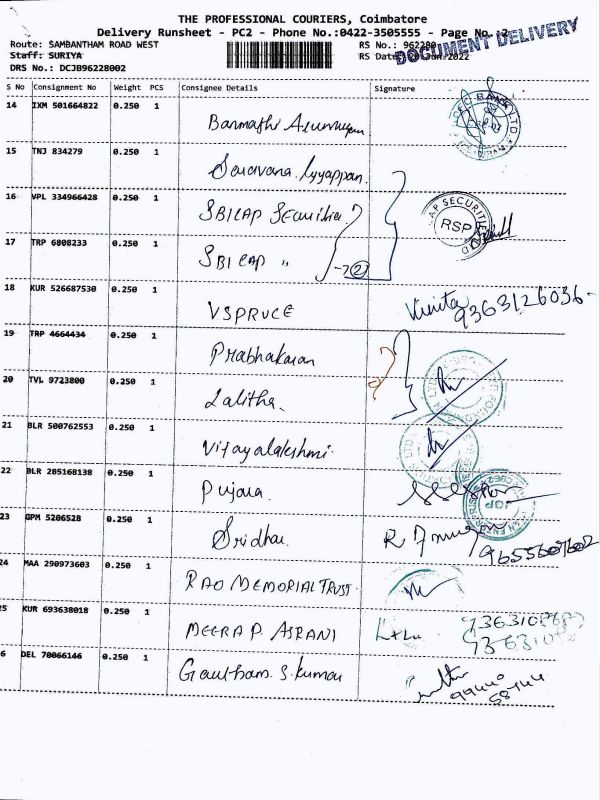 THE PROFESSIONAL COURIERS, Coimbatore
Delivery Runsheet - PC2 - Phone No.:0422-3505555 - Page No. 2
DOCUMENT DELIVERY
Route: SAMBANTHAM ROAD WEST
RS No.: 962280
Staff: SURIYA
RS Date: Jun 2022
DRS No.: DCJB96228002
S No Consignment No Weight PCS Consignee Details Signature
14 IXM 501664822 0.250 1
15 TNJ 834279 0.250 1 Saravana Iyyappan
16 VPL 334966428 0.250 1 SBICAP Securities
RSP
17 TRP 6808233 0.250 1 SBI CAP "
2
18 KUR 526687530 0.250 1 VSPRUCE
9363126036
19 TRP 4664434 0.250 1 Prabhakaran
20 TVL 9723800 0.250 1 Lalitha
21 BLR 500762553 0.250 1 Vijayalakshmi
22 BLR 285168138 0.250 1 Pujara
23 GPM 5206528 0.250 1 Sridhar
24 MAA 290973603 0.250 1 RAO MEMORIAL TRUST
25 KUR 693638018 0.250 1 MEERA P. ASRANI
26 DEL 70066146 0.250 1 Gautham. S. kumar